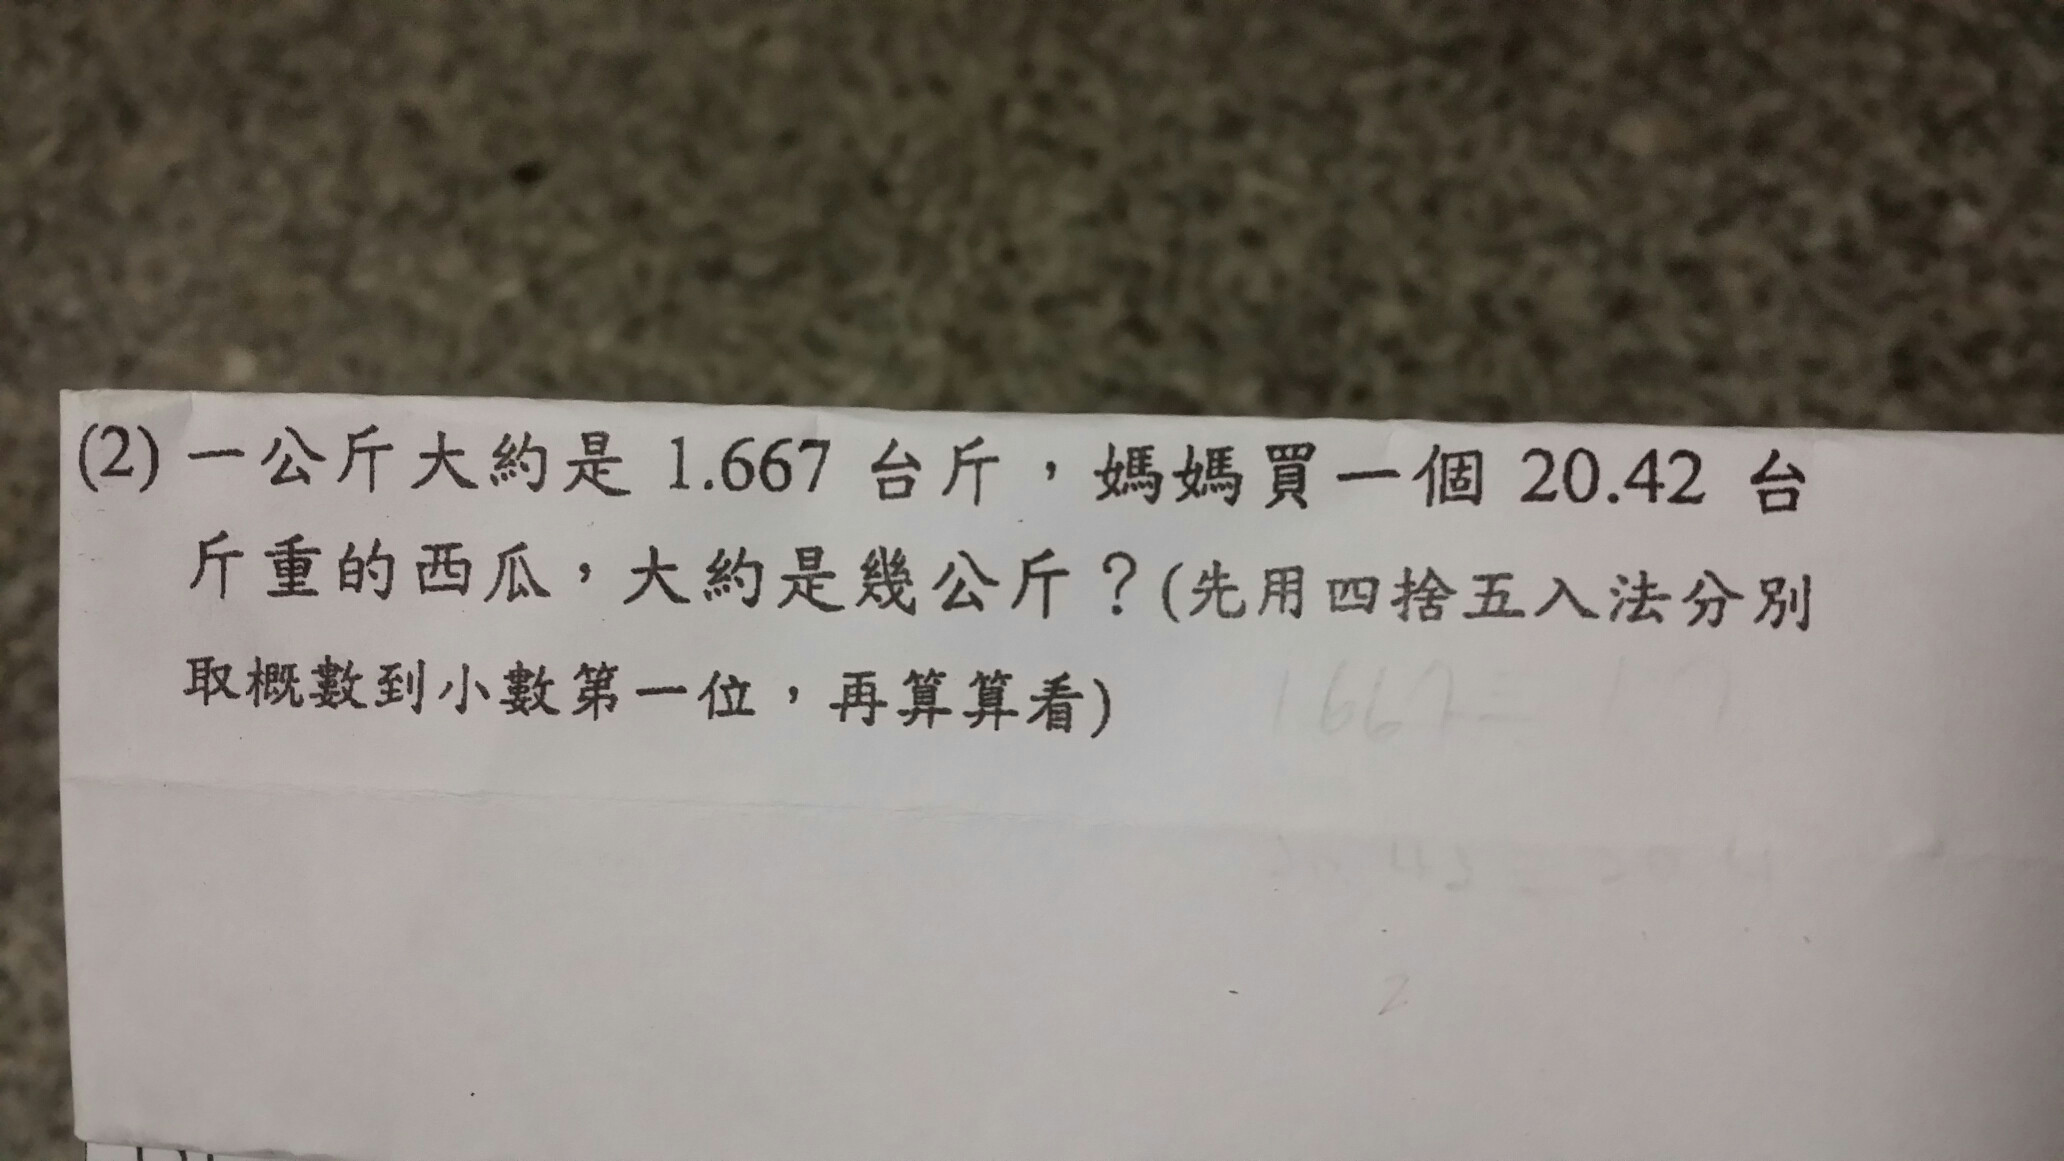 (2) 一公斤大約是 1.667 台斤，媽媽買一個 20.42 台
斤重的西瓜，大約是幾公斤？(先用四捨五入法分別
取概數到小數第一位，再算算看)
1.667≒ 1.7
20.42≒20.4
2